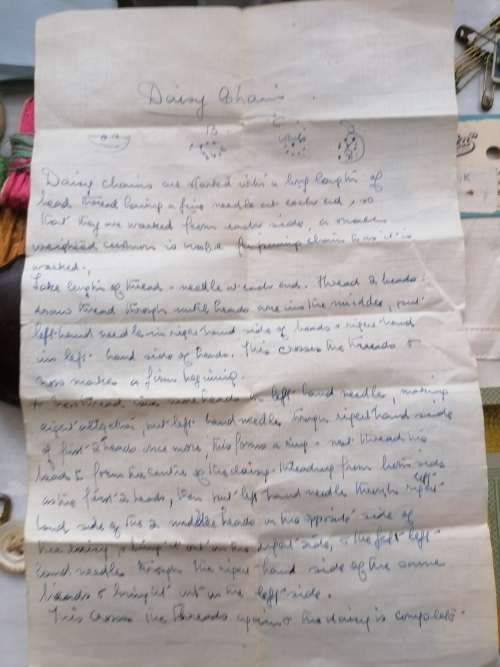 Daisy Chain
B C D
Daisy chains are started with a long length of
bead thread having a fine needle at each end, so
that they are worked from each side, a small
weighted cushion is useful for pinning chain to as it is
worked.
Take length of thread & needle each end. Thread 2 beads
draw thread through until beads are in the middle, put
left hand needle in right hand side of beads & right hand
in left hand side of beads. This crosses the threads &
makes a firm beginning.
thread six more beads on left hand needle, making
eight altogether, put left hand needle through right hand side
of first 2 beads once more, this forms a ring. next thread two
beads to form the centre of the daisy. threading from both side
as the first 2 beads, then put left hand needle through right
hand side of the 2 middle beads on the opposite side of
the daisy & bring it out on the right side, & the left
hand needle through the right hand side of the same
beads & bring it out on the left side.
This crosses the threads again & the daisy is complete.
K